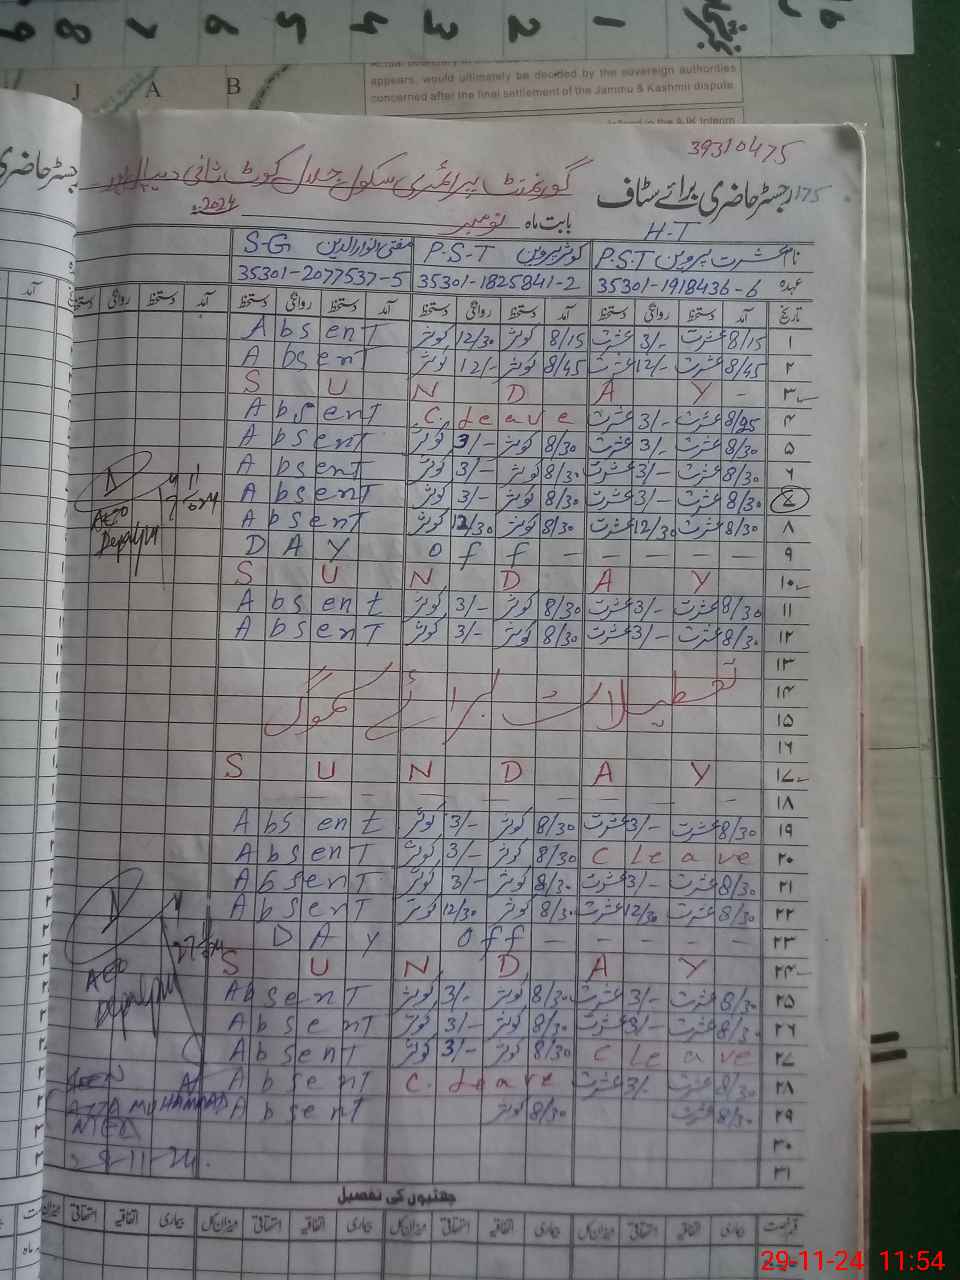 9 8 7 6 5 4 3 2 1
J A B
appears, would ultimately be decided by the sovereign authorities
concerned after the final settlement of the Jammu & Kashmir dispute
39310475
گورنمنٹ پرائمری سکول جلال کوٹ ثانی دیپالپور
رجسٹر حاضری برائے سٹاف
بابت ماہ نومبر 2024ء
H.T
نام عشرت پروین P.S.T کوثر پروین P.S.T مفتی انوارالدین S-G
عہدہ 35301-1918436-6 35301-1825841-2 35301-2077537-5
تاریخ آمد دستخط روانگی دستخط آمد دستخط روانگی دستخط آمد دستخط روانگی دستخط آمد دستخط روانگی دستخط
۱ 8/15 عشرت 3/- عشرت 8/15 کوثر 12/30 کوثر Absent
۲ 8/45 عشرت 12/- عشرت 8/45 کوثر 12/- کوثر Absent
۳ SUNDAY -
۴ عشرت 3/- عشرت C. Leave Absent
۵ 8/30 عشرت 3/- عشرت 8/30 کوثر 3/- کوثر Absent
۶ 8/30 عشرت 3/- عشرت 8/30 کوثر 3/- کوثر Absent
۷ 8/30 عشرت 3/- عشرت 8/30 کوثر 3/- کوثر Absent
۸ 8/30 عشرت 12/30 عشرت 8/30 کوثر 12/30 کوثر Absent
۹ DAY off — — — — —
۱۰ SUNDAY
۱۱ 8/30 عشرت 3/- عشرت 8/30 کوثر 3/- کوثر Absent
۱۲ 8/30 عشرت 3/- عشرت 8/30 کوثر 3/- کوثر Absent
۱۳
۱۴ تعطیلات برائے سموگ
۱۵
۱۶
۱۷ SUNDAY
۱۸ — — — — —
۱۹ 8/30 عشرت 3/- عشرت 8/30 کوثر 3/- کوثر Absent
۲۰ C Leave 8/30 کوثر 3/- کوثر Absent
۲۱ 8/30 عشرت 3/- عشرت 8/30 کوثر 3/- کوثر Absent
۲۲ 8/30 عشرت 12/30 عشرت 8/30 کوثر 12/30 کوثر Absent
۲۳ DAY off — — — — —
۲۴ SUNDAY
۲۵ 8/30 عشرت 3/- عشرت 8/30 کوثر 3/- کوثر Absent
۲۶ 8/30 عشرت 3/- عشرت 8/30 کوثر 3/- کوثر Absent
۲۷ C Leave 8/30 کوثر 3/- کوثر Absent
۲۸ 8/30 عشرت 3/- عشرت C. Leave Absent
۲۹ 8/30 عشرت 8/30 کوثر Absent
۳۰
۳۱
AEO
Depalpur
AEO
Depalpur
MUHAMMAD
چھٹیوں کی تفصیل
قسم رخصت بیماری اتفاقیہ استحقاقی میزان کل بیماری اتفاقیہ استحقاقی میزان کل بیماری اتفاقیہ استحقاقی میزان کل بیماری اتفاقیہ استحقاقی میزان کل
29-11-24 11:54